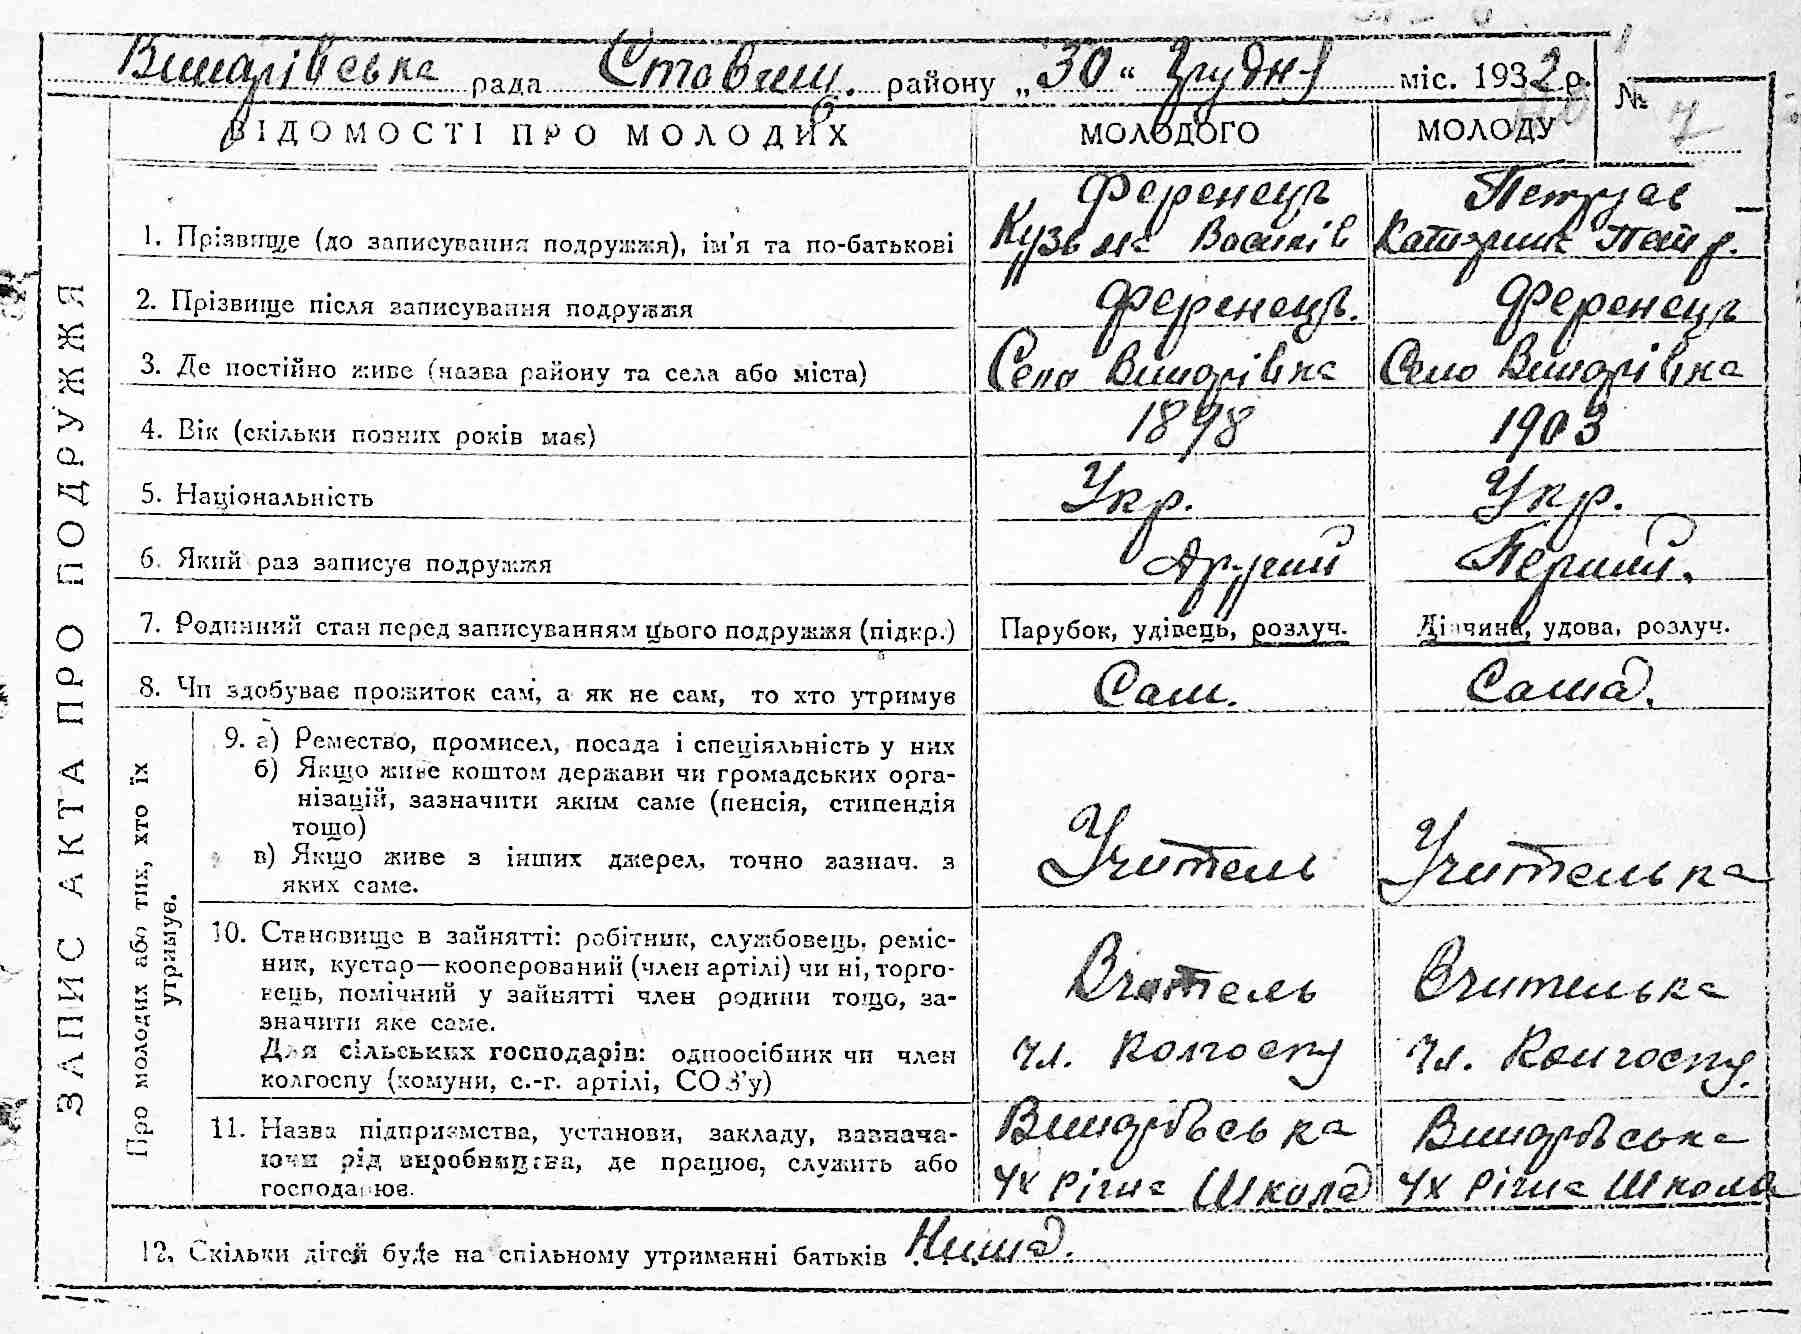 Винарівська рада Ставищ. району „30“ Грудня міс. 1932 р.
№ 7
ВІДОМОСТІ ПРО МОЛОДИХ МОЛОДОГО МОЛОДУ
ЗАПИС АКТА ПРО ПОДРУЖЖЯ
Ференець
Кузьма Василів
Петрусь
Катерина Петр.
1. Прізвище (до записування подружжя), ім'я та по-батькові
2. Прізвище після записування подружжя Ференець. Ференець
3. Де постійно живе (назва району та села або міста) Село Винарівка Село Винарівка
4. Вік (скільки позних років має) 1898 1903
5. Національність Укр. Укр.
6. Який раз записує подружжя Другий Перший.
7. Родинний стан перед записуванням цього подружжя (підкр.) Парубок, удівець, розлуч. Дівчина, удова, розлуч.
8. Чи здобуває прожиток сам, а як не сам, то хто утримує Сам. Сама.
Про молодих або тих, хто їх
утримує.
9. а) Ремество, промисел, посада і спеціяльність у них
б) Якщо живе коштом держави чи громадських орга-
нізацій, зазначити яким саме (пенсія, стипендія
тощо)
в) Якщо живе з інших джерел, точно зазнач. з
яких саме.
Учитель Учителька
10. Становище в зайнятті: робітник, службовець, реміс-
ник, кустар—кооперований (член артілі) чи ні, торго-
вець, помічний у зайнятті член родини тощо, за-
значити яке саме.
Для сільських господарів: одноосібник чи член
колгоспу (комуни, с.-г. артілі, СОЗ'у)
Вчитель
чл. Колгоспу
Вчителька
чл. Колгоспу.
11. Назва підприємства, установи, закладу, зазнача-
ючи рід виробництва, де працює, служить або
господарює.
Винарівська
4х річна Школа
Винарівська
4х річна Школа
12. Скільки дітей буде на спільному утриманні батьків Нима.